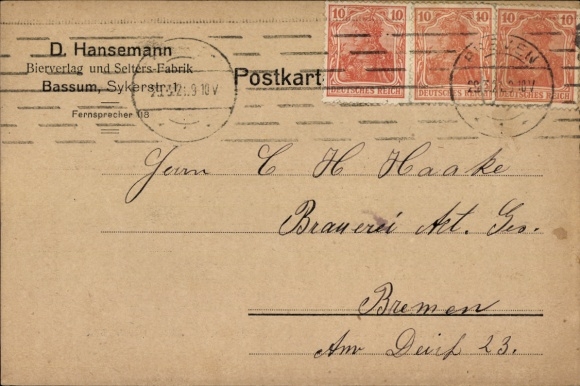 D. Hansemann
Bierverlag und Selters-Fabrik
Bassum, Sykerstr.
Fernsprecher 118
Postkart
10 10
DEUTSCHES REICH
10 10
DEUTSCHES REICH
10 10
DEUTSCHES REICH
9-10 V
Herrn C H Haake
Brauerei Akt. Ges.
Bremen
Am Deich 23.